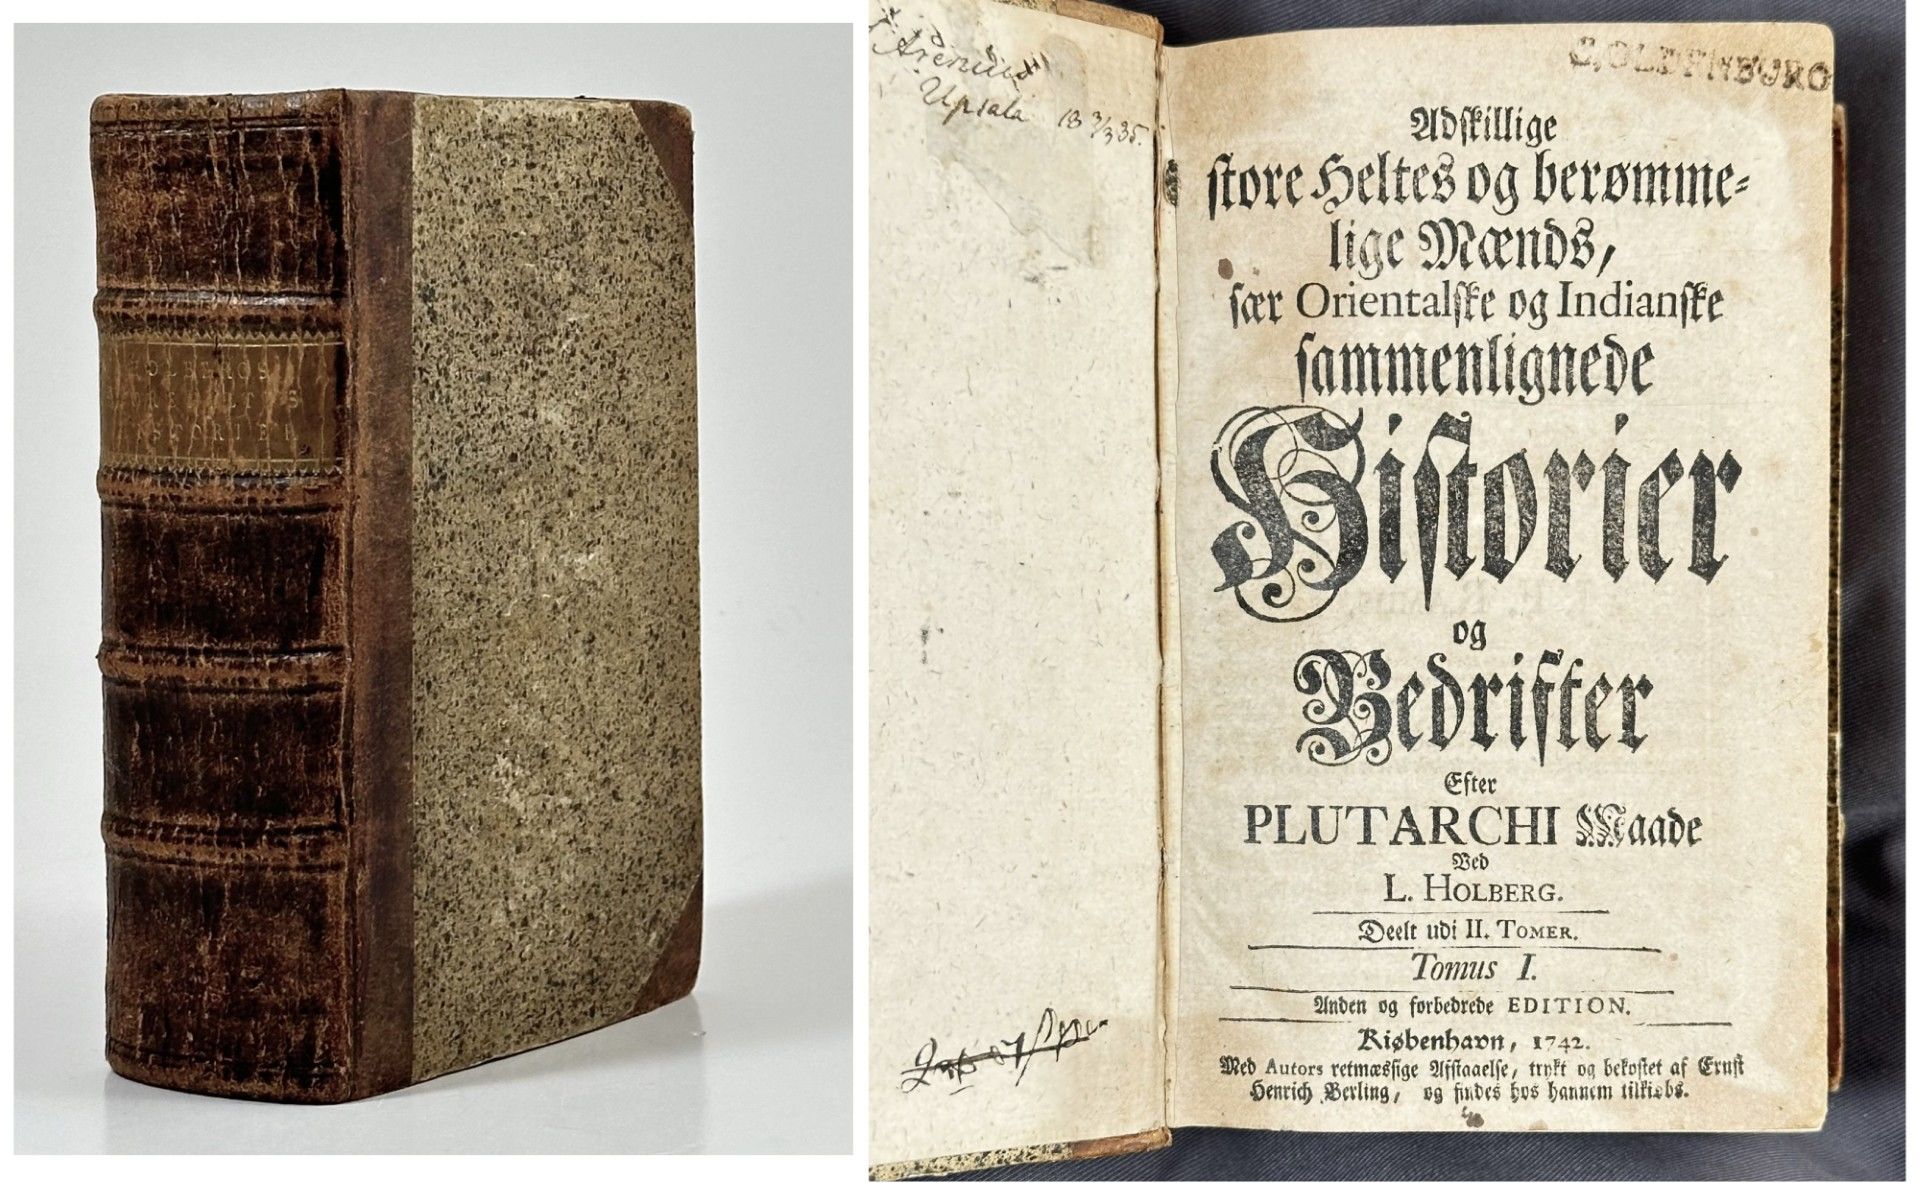 HOLBERGS
HISTORIER
Upsala 18 3/3 35.
Adskillige
store Heltes og berømme-
lige Mænds,
sær Orientalske og Indianske
sammenlignede
Historier
og
Bedrifter
Efter
PLUTARCHI Maade
Ved
L. HOLBERG.
Deelt udi II. TOMER.
Tomus I.
Anden og forbedrede EDITION.
Kiøbenhavn, 1742.
Med Autors retmæssige Afstaaelse, trykt og bekostet af Ernst
Henrich Berling, og findes hos hannem tilkiøbs.